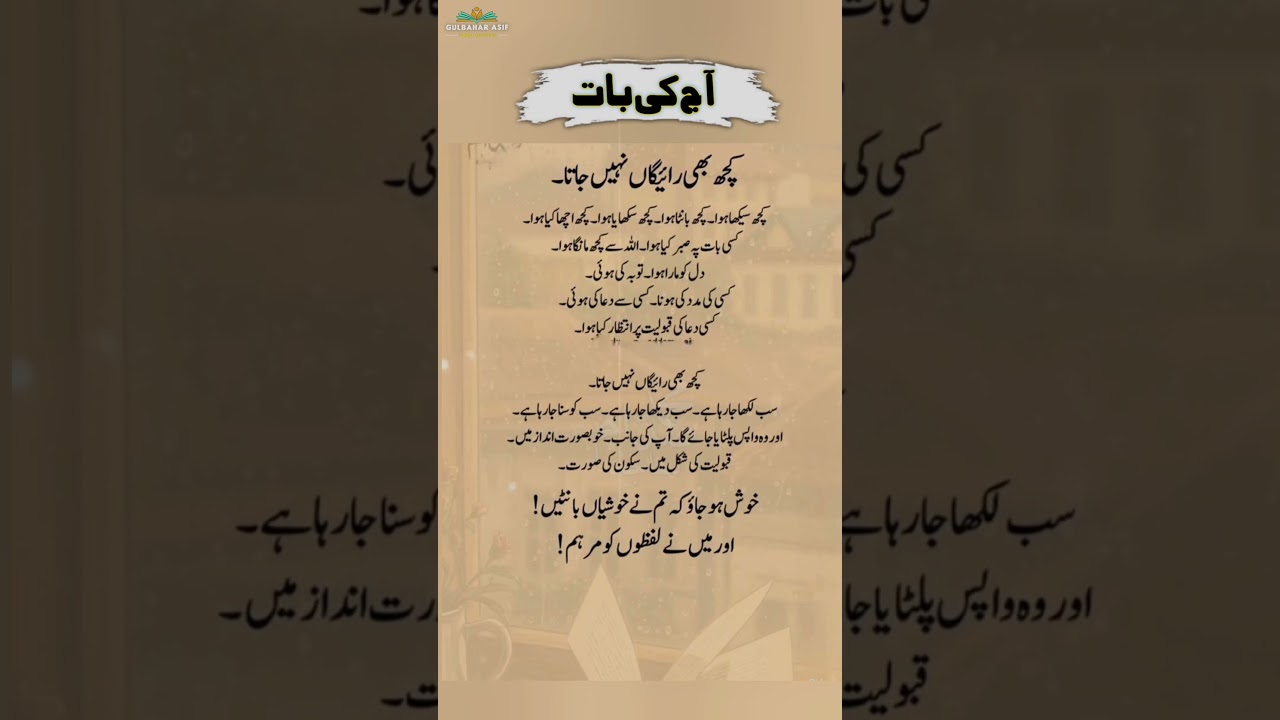 GULBAHAR ASIF
آج کی بات
کچھ بھی رائیگاں نہیں جاتا۔
کچھ سیکھا ہوا۔ کچھ بانٹا ہوا۔ کچھ سکھایا ہوا۔ کچھ اچھا کیا ہوا۔
کسی بات پہ صبر کیا ہوا۔ اللہ سے کچھ مانگا ہوا۔
دل کو مارا ہوا۔ توبہ کی ہوئی۔
کسی کی مدد کی ہونا۔ کسی سے دعا کی ہوئی۔
کسی دعا کی قبولیت پر انتظار کیا ہوا۔
کچھ بھی رائیگاں نہیں جاتا۔
سب لکھا جا رہا ہے۔ سب دیکھا جا رہا ہے۔ سب کو سنا جا رہا ہے۔
اور وہ واپس پلٹایا جائے گا۔ آپ کی جانب۔ خوبصورت انداز میں۔
قبولیت کی شکل میں۔ سکون کی صورت۔
خوش ہو جاؤ کہ تم نے خوشیاں بانٹیں!
اور میں نے لفظوں کو مرہم!